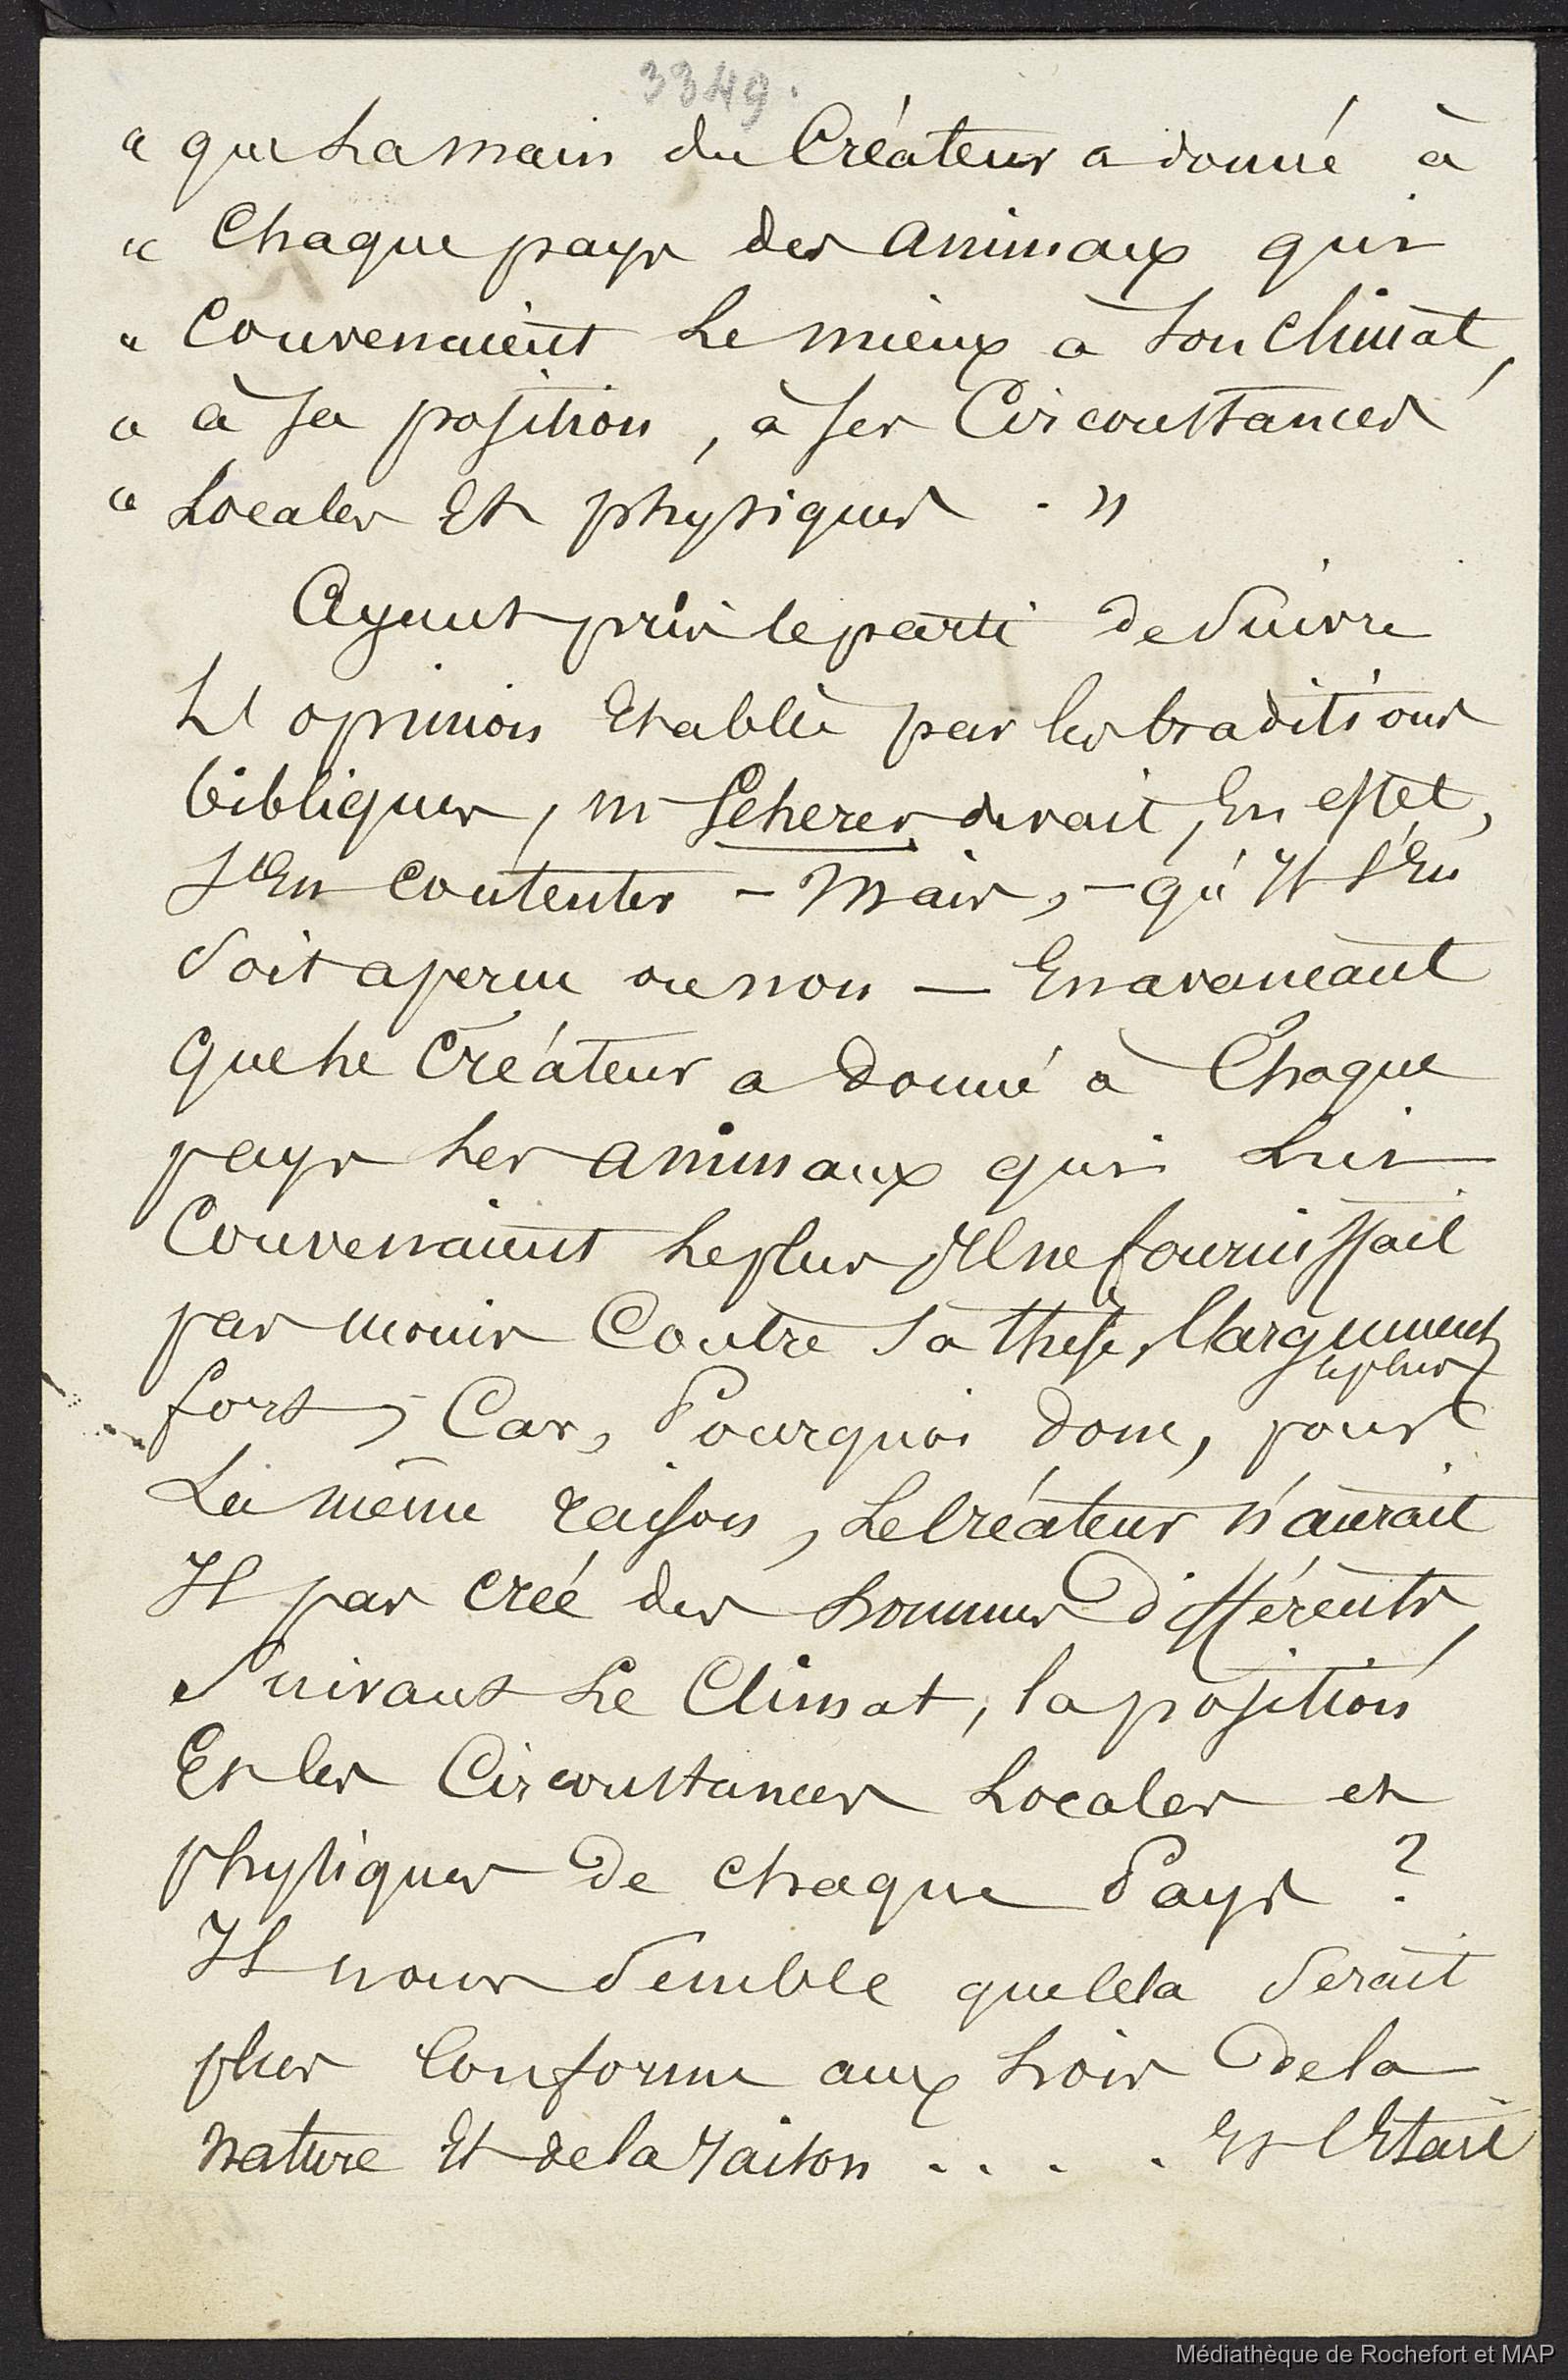 3349.
« que La main du Créateur a donné à
« Chaque pays des animaux qui
« Convenaient Le mieux à son climat,
« à sa position, à ses Circonstances
« Locales Et physiques. »
Ayant pris le parti de Suivre
L'opinion Etablie par les traditions
bibliques, m Scherer devait, En effet,
s'En contenter – Mais, – qu'Il s'En
soit aperçu ou non — En avançant
que le Créateur a donné à Chaque
pays les animaux qui Lui
Convenaient le plus, Il ne fournissait
pas moins Contre sa thèse, l'argument
le plus
fort, Car, Pourquoi donc, pour
La même raison, Le Créateur n'aurait
Il pas créé des hommes Différents,
Suivant Le Climat, la position
Et les Circonstances Locales et
physiques De chaque Pays ?
Il nous Semble que cela Serait
plus Conforme aux Lois De la
nature Et de la raison . . . . Et c'Etait
Médiathèque de Rochefort et MAP